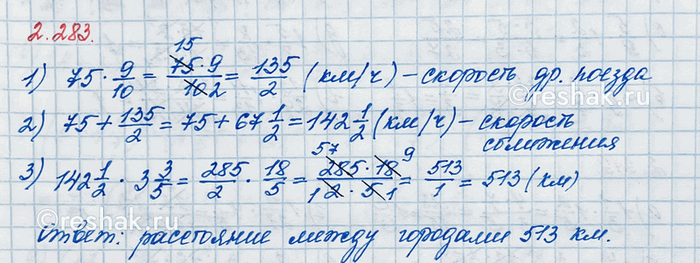 2.283.
1) 75 · 9/10 = 75·9/10 2 = 135/2 (км/ч) – скорость др. поезда
15
2) 75 + 135/2 = 75 + 67 1/2 = 142 1/2 (км/ч) – скорость
сближения
3) 142 1/2 · 3 3/5 = 285/2 · 18/5 = 57 285·18 9/1 2·5 1 = 513/1 = 513 (км)
Ответ: расстояние между городами 513 км.
reshak.ru